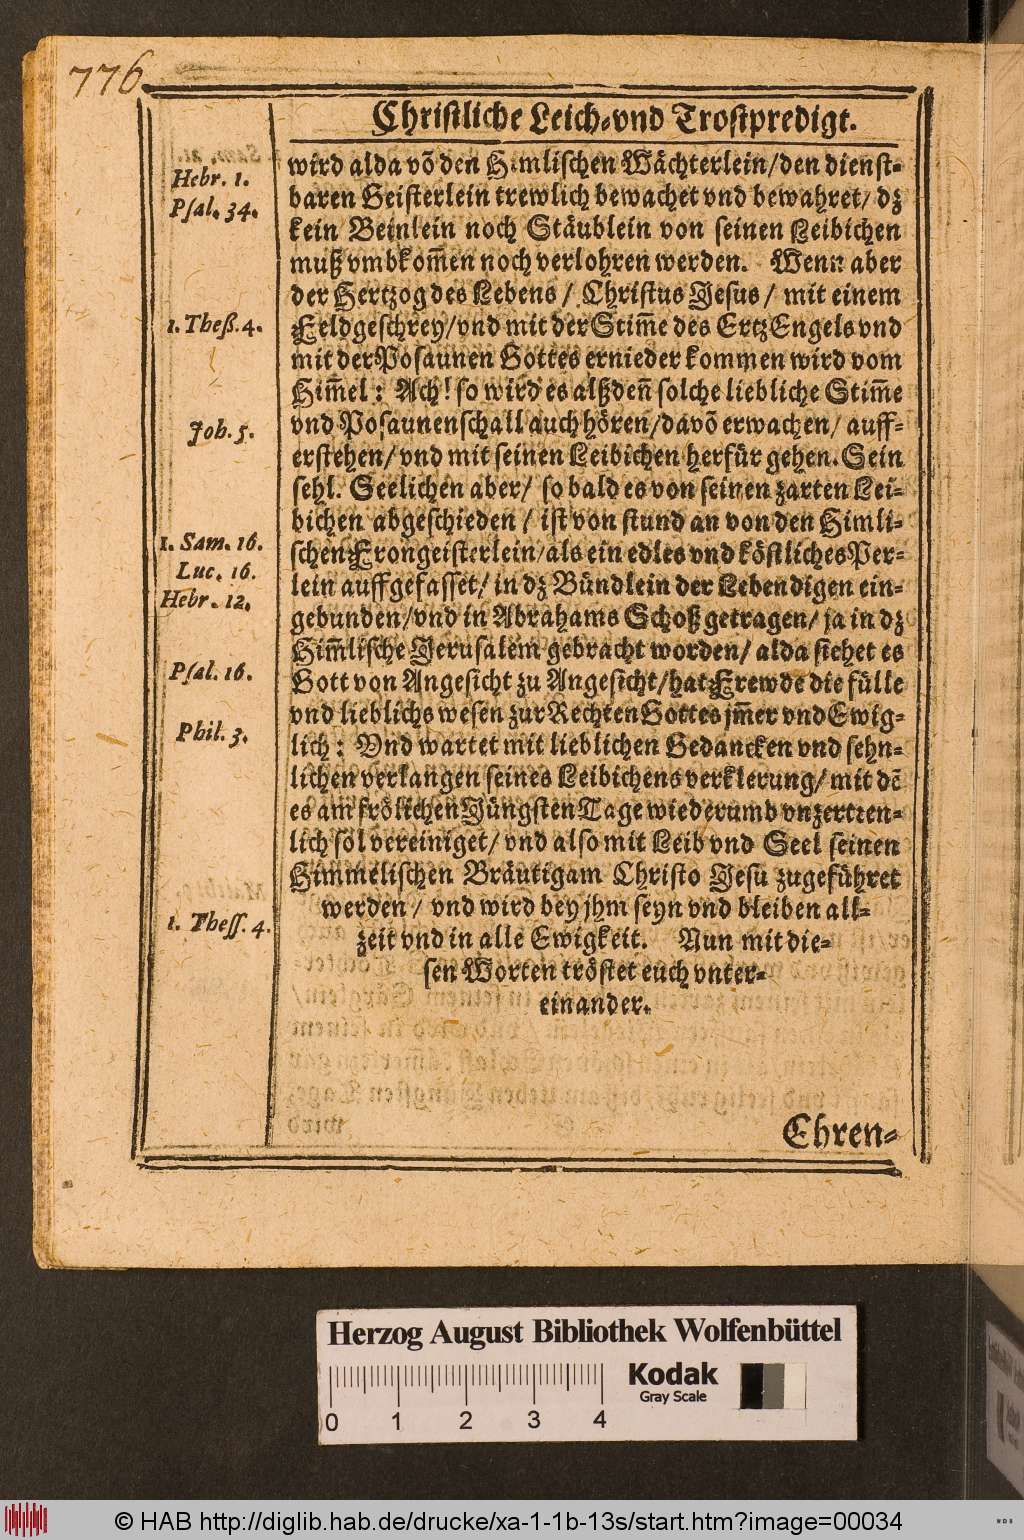 776
Christliche Leich-vnd Trostpredigt.
Hebr. 1.
Psal. 34.
1. Theß. 4.
Joh. 5.
1. Sam. 16.
Luc. 16.
Hebr. 12.
Psal. 16.
Phil. 3.
1. Thess. 4.
wird alda võ den Himlischen Wächterlein/den dienst-
baren Geisterlein trewlich bewachet vnd bewahret/ dz
kein Beinlein noch Stäublein von seinen Leibichen
muß vmbkom̃en noch verlohren werden. Wenn aber
der Hertzog des Lebens / Christus Jesus / mit einem
Feldgeschrey/vnd mit der Stim̃e des ErtzEngels vnd
mit der Posaunen Gottes ernieder kommen wird vom
Him̃el: Ach! so wird es alßdeñ solche liebliche Stim̃e
vnd Posaunenschall auch hören/davõ erwachen/ auff-
erstehen/ vnd mit seinen Leibichen herfür gehen. Sein
sehl. Seelichen aber/ so bald es von seinen zarten Lei-
bichen abgeschieden / ist von stund an von den Himli-
schen Frongeisterlein/als ein edles vnd köstliches Per-
lein auffgefasset/ in dz Bündlein der Lebendigen ein-
gebunden/vnd in Abrahams Schoß getragen/ ja in dz
Him̃lische Jerusalem gebracht worden/ alda siehet es
Gott von Angesicht zu Angesicht/hat Frewde die fülle
vnd lieblichs wesen zur Rechten Gottes jm̃er vnd Ewig-
lich: Vnd wartet mit lieblichen Gedancken vnd sehn-
lichen verlangen seines Leibichens verklerung/ mit dẽ
es am frölichen Jüngsten Tage wiederumb vnzertren-
lich sol vereiniget/ vnd also mit Leib vnd Seel seinen
Himmelischen Bräutigam Christo Jesu zugeführet
werden/ vnd wird bey jhm seyn vnd bleiben all-
zeit vnd in alle Ewigkeit. Nun mit die-
sen Worten tröstet euch vnter-
einander.
Ehren-
Herzog August Bibliothek Wolfenbüttel
0 1 2 3 4
Kodak
Gray Scale
© HAB http://diglib.hab.de/drucke/xa-1-1b-13s/start.htm?image=00034